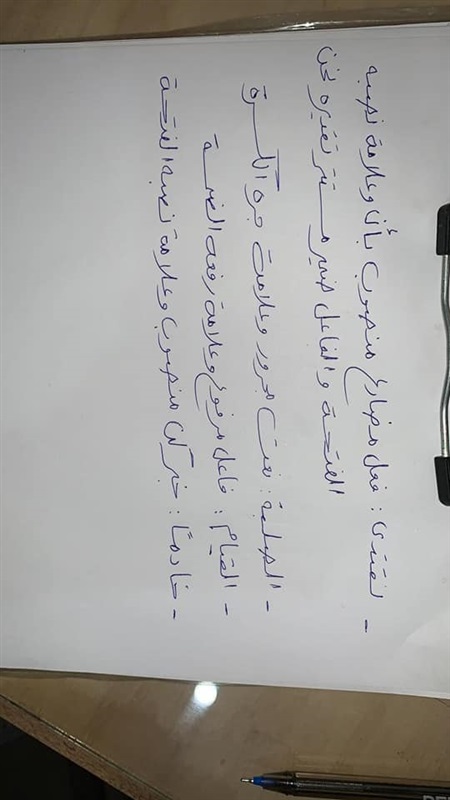 - نقتدى : فعل مضارع منصوب بأن وعلامة نصبه
الفتحة والفاعل ضمير مستتر تقديره نحن
- الصلبة : نعت مجرور وعلامت جره الكسرة
- القيام : فاعل مرفوع وعلامة رفعه الضمة
- خادمًا : خبر كان منصوب وعلامة نصبه الفتحة